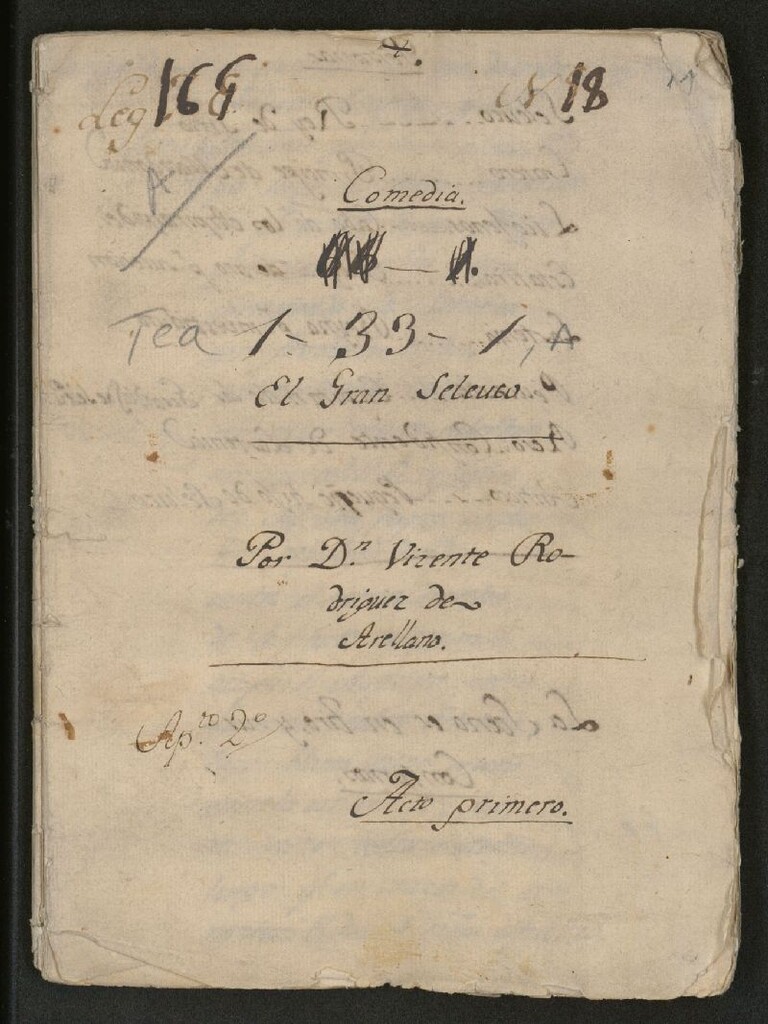 Leg 166 N 18
Comedia.
Tea 1-33-1, A
El Gran Seleuco
Por D.n Vizente Ro-
driguez de
Arellano.
Ap.to 2º
Acto primero.